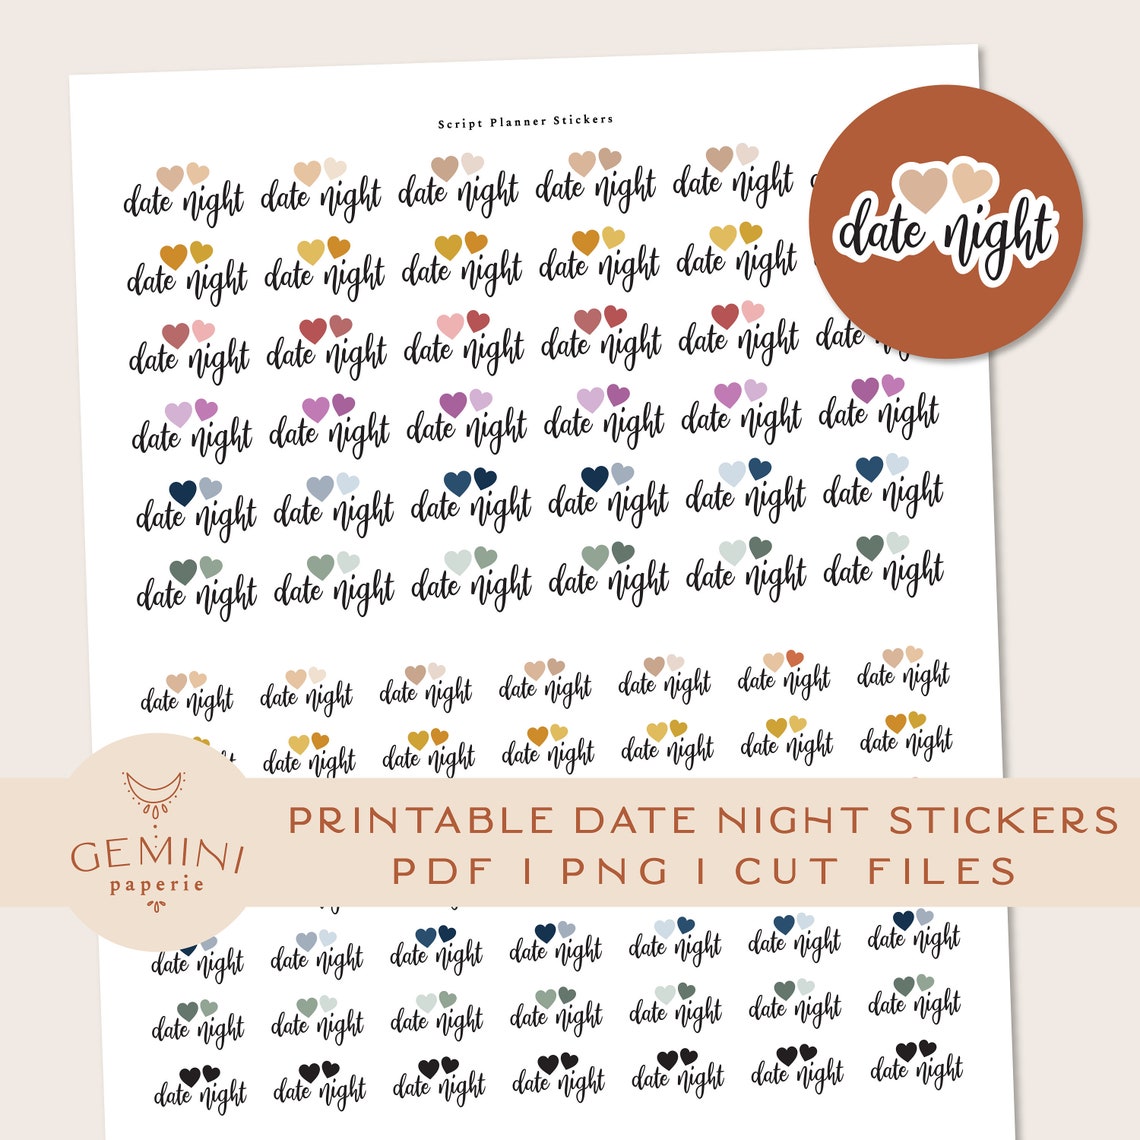 Script Planner Stickers
date night date night date night date night date night
date night
date night date night date night date night date night
date night date night date night date night date night date
date night date night date night date night date night date night
date night date night date night date night date night date night
date night date night date night date night date night date night
date night date night date night date night date night date night date night
date night date night date night date night date night date night
GEMINI
paperie
PRINTABLE DATE NIGHT STICKERS
PDF | PNG | CUT FILES
date night date night date night date night date night date night date night
date night date night date night date night date night date night date night
date night date night date night date night date night date night date night